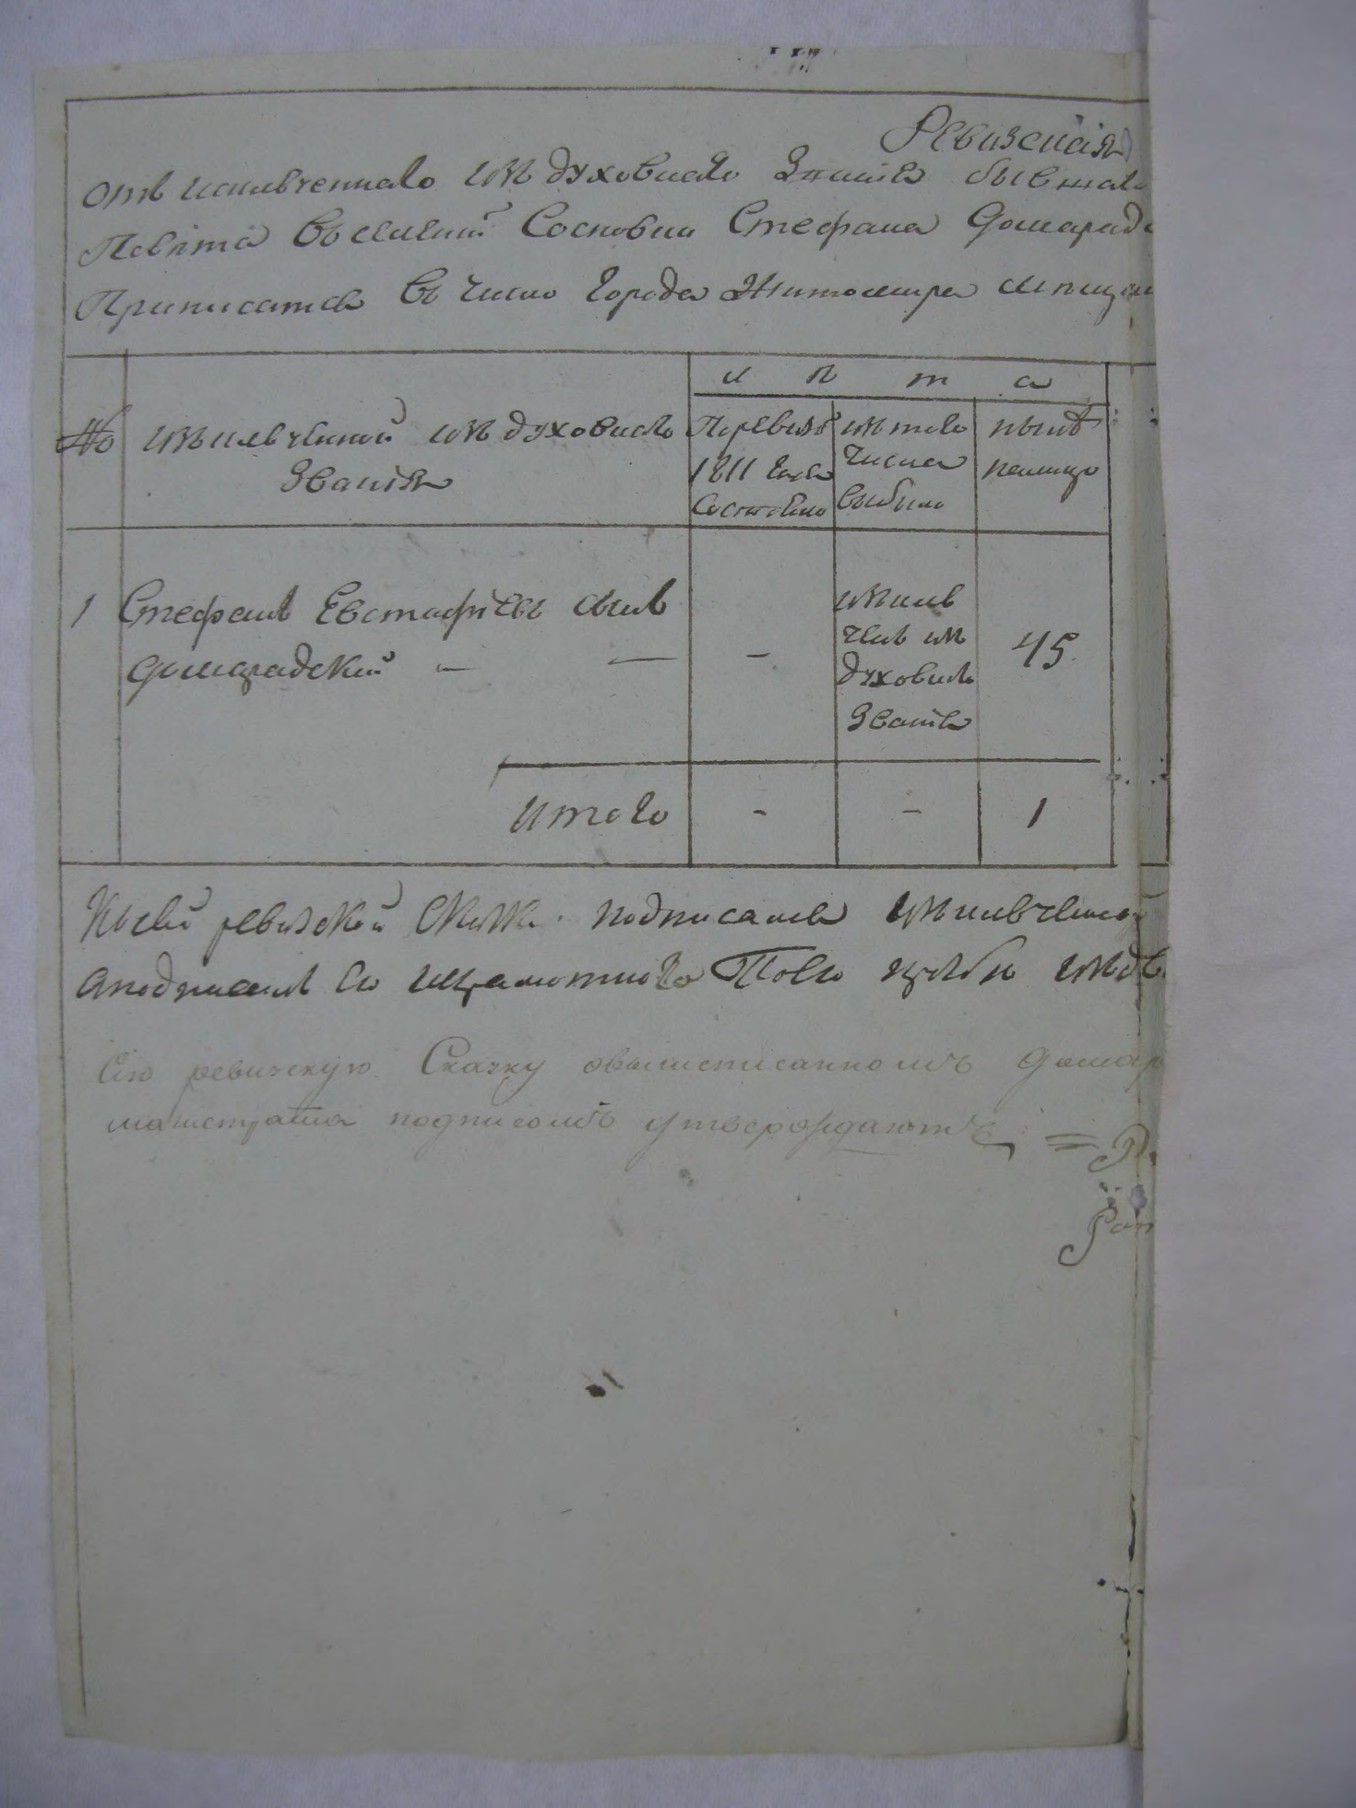 Ревизская
отъ исключеннаго изъ духовнаго званія бывшаго
Повѣта въ селеніи Сосновки Стефана Домарадс
Приписатся въ число города Житомира мѣщан
лѣта
№ исключеный изъ духовнаго званія
По ревизіи 1811 года состояло
изъ того числа выбыло
нынѣ на лицо
1 Стефанъ Евстафіевъ сынъ
Домарадскій — —
-
исключенъ изъ духовнаго званія
45
Итого - - 1
Къ сей ревизской сказки подписался исключеный
а подписалъ по неграмотности его
Сію ревизскую Сказку о вышеписанномъ Домар
магистрата подписомъ утверждаютъ =